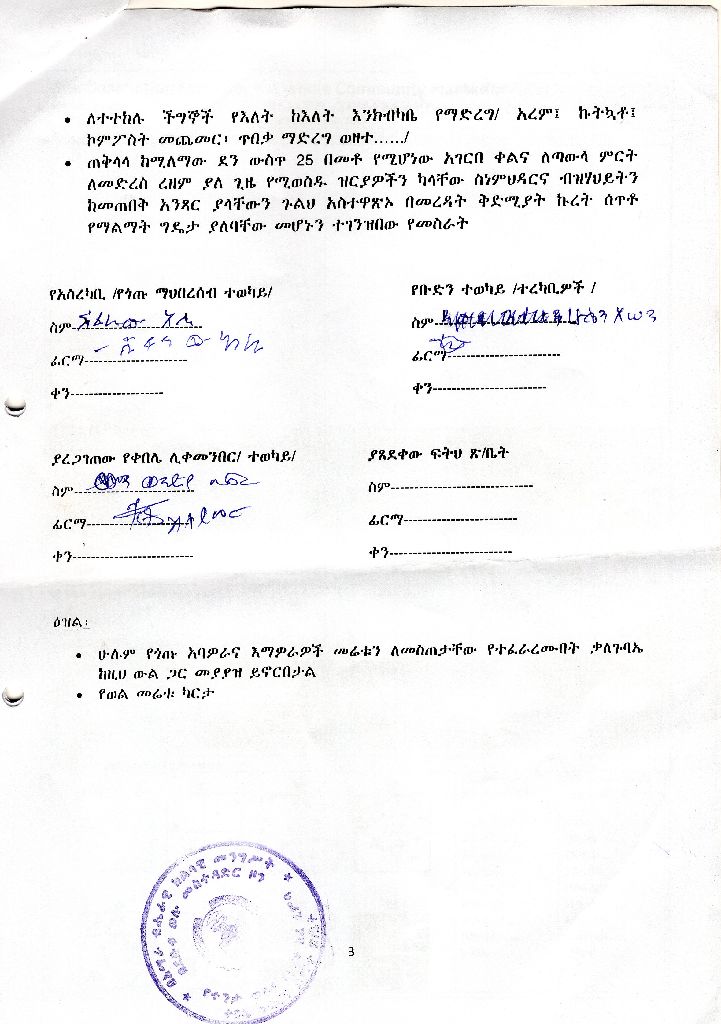 ለተተከሉ ችግኞች የእለት ከእለት እንክብካቤ የማድረግ/ አረም፤ ኩትኳቶ፤
ኮምፖስት መጨመር፡ ጥበቃ ማድረግ ወዘተ....../
ጠቅላላ ከሚለማው ደን ውስጥ 25 በመቶ የሚሆነው አገርበ ቀልና ለጣውላ ምርት
ለመድረስ ረዘም ያለ ጊዜ የሚወስዱ ዝርያዎችን ካላቸው ስነምህዳርና ብዝሃህይትን
ከመጠበቅ አንጻር ያላቸውን ጉልህ አስተዋጽኦ በመረዳት ቅድሚያት ኩረት ሰጥቶ
የማልማት ግዴታ ያለባቸው መሆኑን ተገንዝበው የመስራት
የአስረካቢ /የጎጡ ማህበረሰብ ተወካይ/
ስም
ፊርማ--------------------
ቀን-------------------
የቡድን ተወካይ /ተረካቢዎች /
ስም
ፊርማ----------------------
ቀን----------------------
ያረጋገጠው የቀበሌ ሊቀመንበር/ ተወካይ/
ስም
ፊርማ
ቀን-----------------------
ያጸደቀው ፍትህ ጽ/ቤት
ስም---------------------------
ፊርማ----------------------
ቀን-----------------------
ዕዝል፡
ሁሉም የጎጡ አባዎራና እማዎራዎች መሬቱን ለመስጠታቸው የተፈራረሙበት ቃለጉባኤ
ከዚህ ውል ጋር መያያዝ ይኖርበታል
የወል መሬቱ ካርታ
3